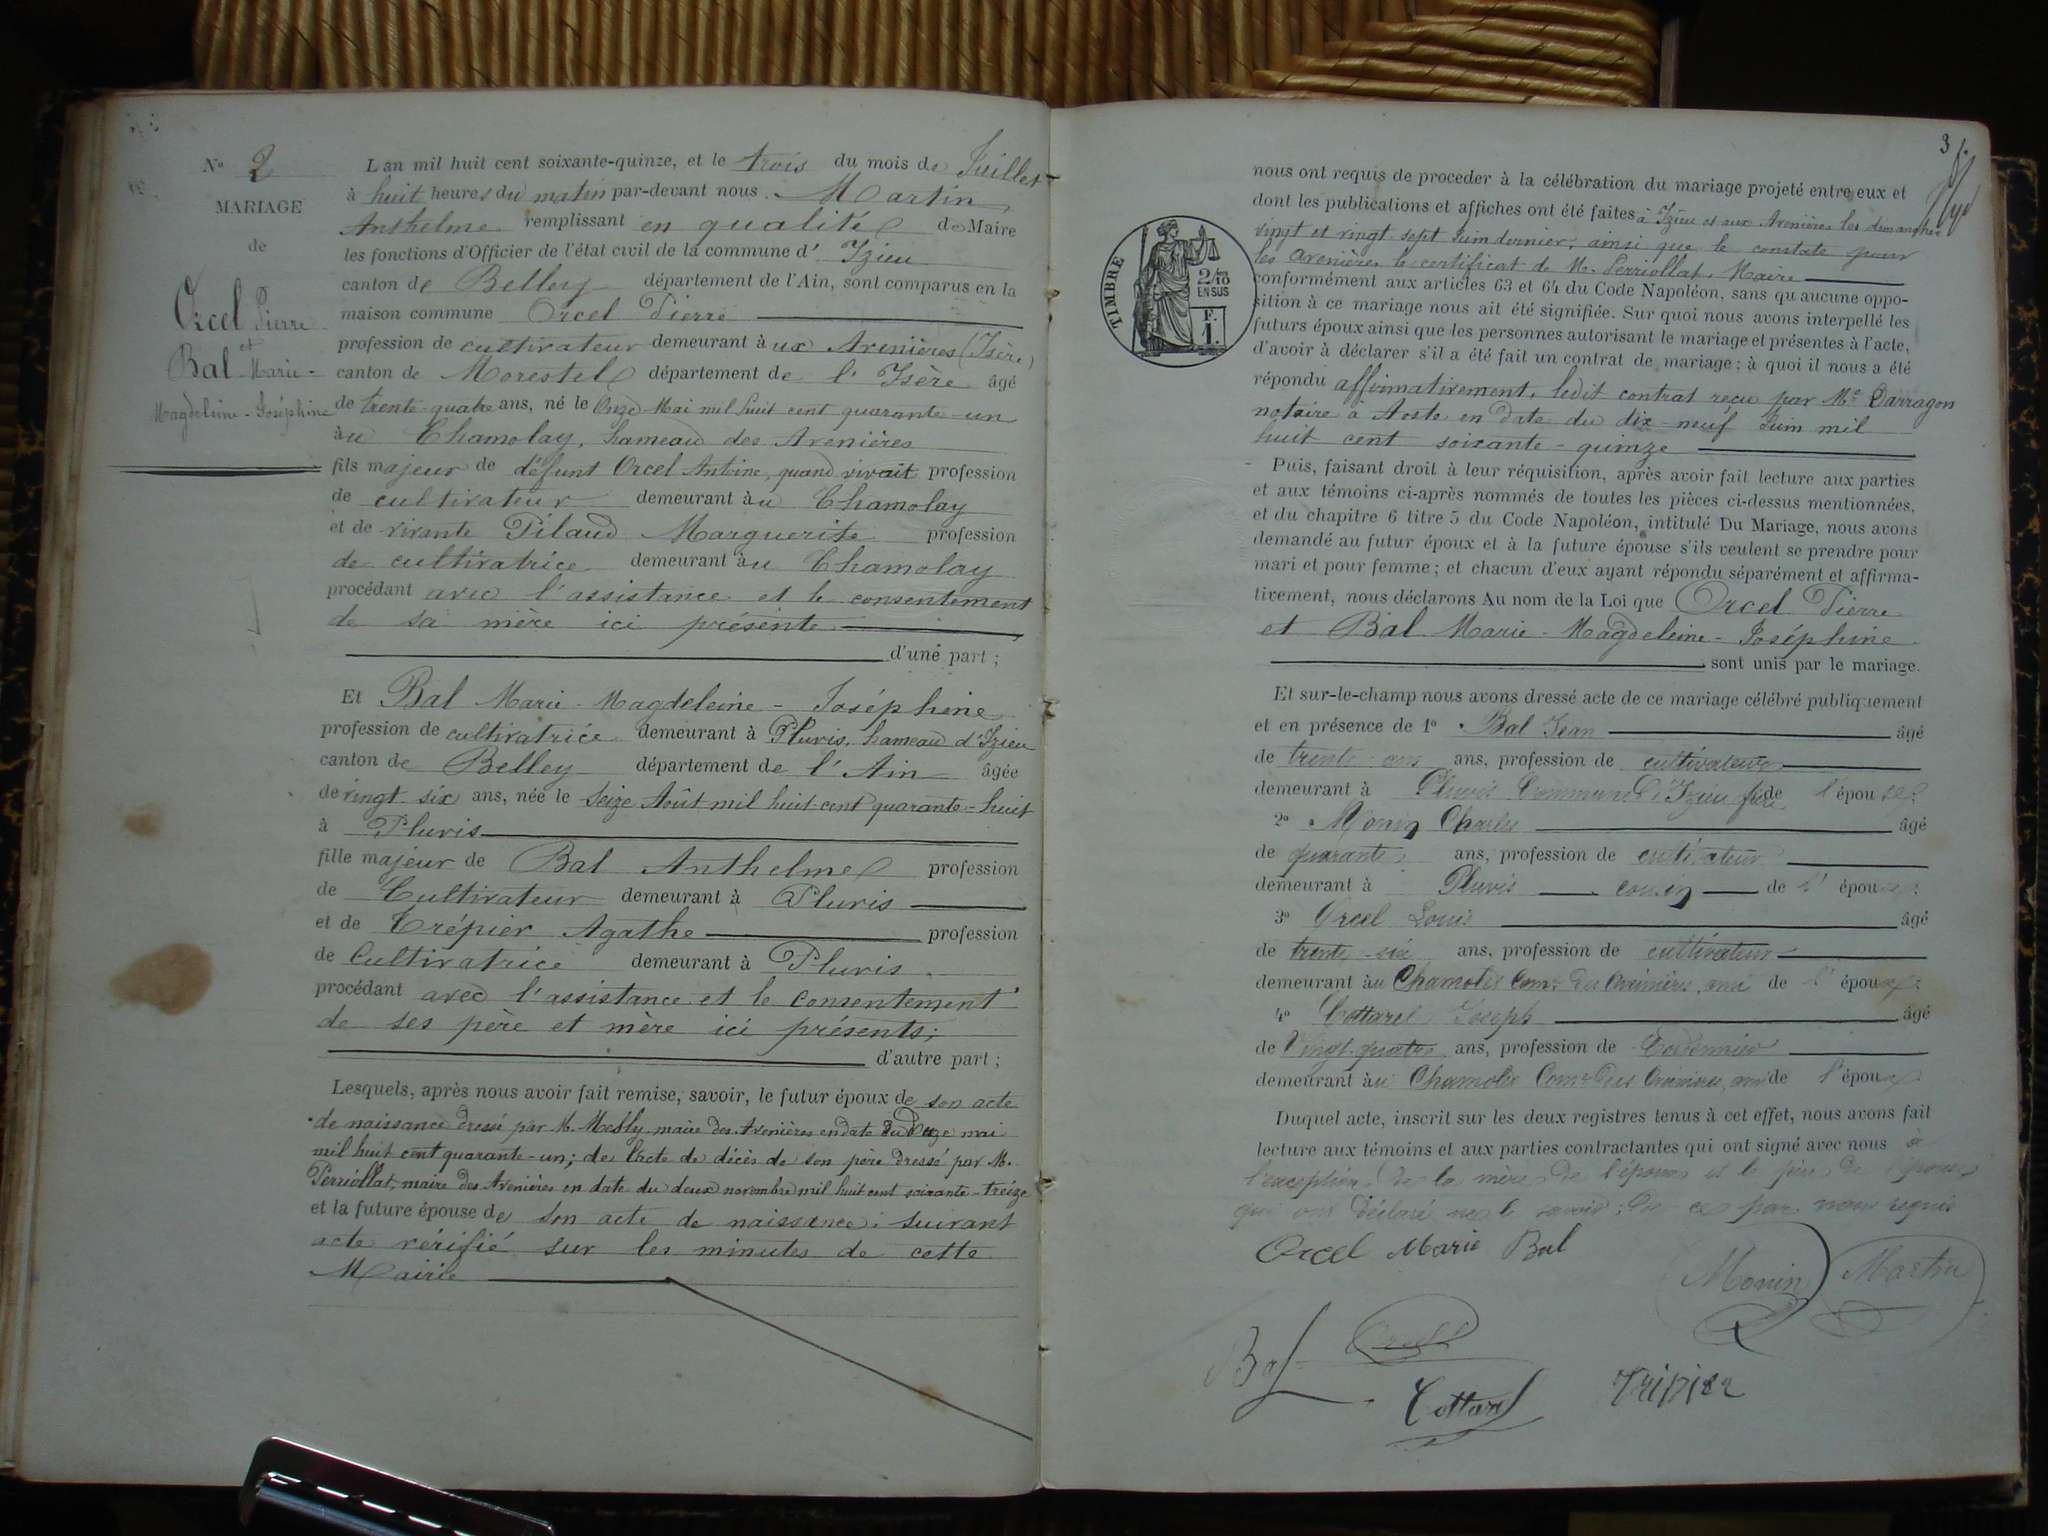 N° 2
MARIAGE
de
Orcel Pierre
et
Bal Marie-
Magdeleine-Joséphine
L'an mil huit cent soixante-quinze, et le trois du mois de Juillet
à huit heures du matin par-devant nous Martin
Anthelme remplissant en qualité de Maire
les fonctions d'Officier de l'état civil de la commune d' Izieu
canton de Belley département de l'Ain, sont comparus en la
maison commune Orcel Pierre
profession de cultivateur demeurant à ux Avenières (Isère)
canton de Morestel département de l' Isère âgé
de trente-quatre ans, né le Onze Mai mil huit cent quarante-un
à u Chamolay, hameau des Avenières
fils majeur de défunt Orcel Antoine, quand vivait profession
de cultivateur demeurant à u Chamolay
et de vivante Pilaud Marguerite profession
de cultivatrice demeurant à u Chamolay
procédant avec l'assistance et le consentement
de sa mère ici présente
d'une part ;
Et Bal Marie-Magdeleine-Joséphine
profession de cultivatrice demeurant à Pluvis, hameau d'Izieu
canton de Belley département de l'Ain âgée
de vingt-six ans, née le seize Août mil huit cent quarante-huit
à Pluvis
fille majeur de Bal Anthelme profession
de Cultivateur demeurant à Pluvis
et de Crépier Agathe profession
de Cultivatrice demeurant à Pluvis
procédant avec l'assistance et le consentement
de ses père et mère ici présents;
d'autre part ;
Lesquels, après nous avoir fait remise, savoir, le futur époux de son acte
de naissance dressé par M. maire des Avenières en date du Onze mai
mil huit cent quarante-un; de l'acte de décès de son père dressé par M.
Perriollat, maire des Avenières en date du deux novembre mil huit cent soixante-treize
et la future épouse de son acte de naissance; suivant
acte vérifié sur les minutes de cette
Mairie
3
nous ont requis de proceder à la célébration du mariage projeté entre eux et
dont les publications et affiches ont été faites à Izieu et aux Avenières les dimanches
vingt et vingt-sept Juin dernier, ainsi que le constate pour
les Avenières le certificat de M. Perriollat, Maire
conformément aux articles 63 et 64 du Code Napoléon, sans qu'aucune oppo-
sition à ce mariage nous ait été signifiée. Sur quoi nous avons interpellé les
futurs époux ainsi que les personnes autorisant le mariage et présentes à l'acte,
d'avoir à déclarer s'il a été fait un contrat de mariage ; à quoi il nous a été
répondu affirmativement, ledit contrat reçu par Me Darragon
notaire à Aoste en date du dix-neuf Juin mil
huit cent soixante-quinze
TIMBRE
2/10
EN SUS
F.
1.
Puis, faisant droit à leur réquisition, après avoir fait lecture aux parties
et aux témoins ci-après nommés de toutes les pièces ci-dessus mentionnées,
et du chapitre 6 titre 5 du Code Napoléon, intitulé Du Mariage, nous avons
demandé au futur époux et à la future épouse s'ils veulent se prendre pour
mari et pour femme ; et chacun d'eux ayant répondu séparément et affirma-
tivement, nous déclarons Au nom de la Loi que Orcel Pierre
et Bal Marie-Magdeleine-Joséphine
sont unis par le mariage.
Et sur-le-champ nous avons dressé acte de ce mariage célébré publiquement
et en présence de 1° Bal Jean âgé
de trente ans ans, profession de cultivateur
demeurant à Pluvis Commune d'Izieu frère de l'épouse
2° Monin Charles âgé
de quarante ans, profession de cultivateur
demeurant à Pluvis cousin de l'épouse
3° Orcel Louis âgé
de trente-six ans, profession de cultivateur
demeurant au Chamolay Comne des Avenières, ami de l' époux
4° Cottarel Joseph âgé
de Vingt-quatre ans, profession de Cordonnier
demeurant au Chamolay Comne des Avenières, ami de l'époux
Duquel acte, inscrit sur les deux registres tenus à cet effet, nous avons fait
lecture aux témoins et aux parties contractantes qui ont signé avec nous à
l'exception de la mère de l'époux et le père de l'épouse
qui ont déclaré ne le savoir; de ce par nous requis
Orcel Marie Bal
Monin Martin
Bal Orcel
Cottarel Tripier